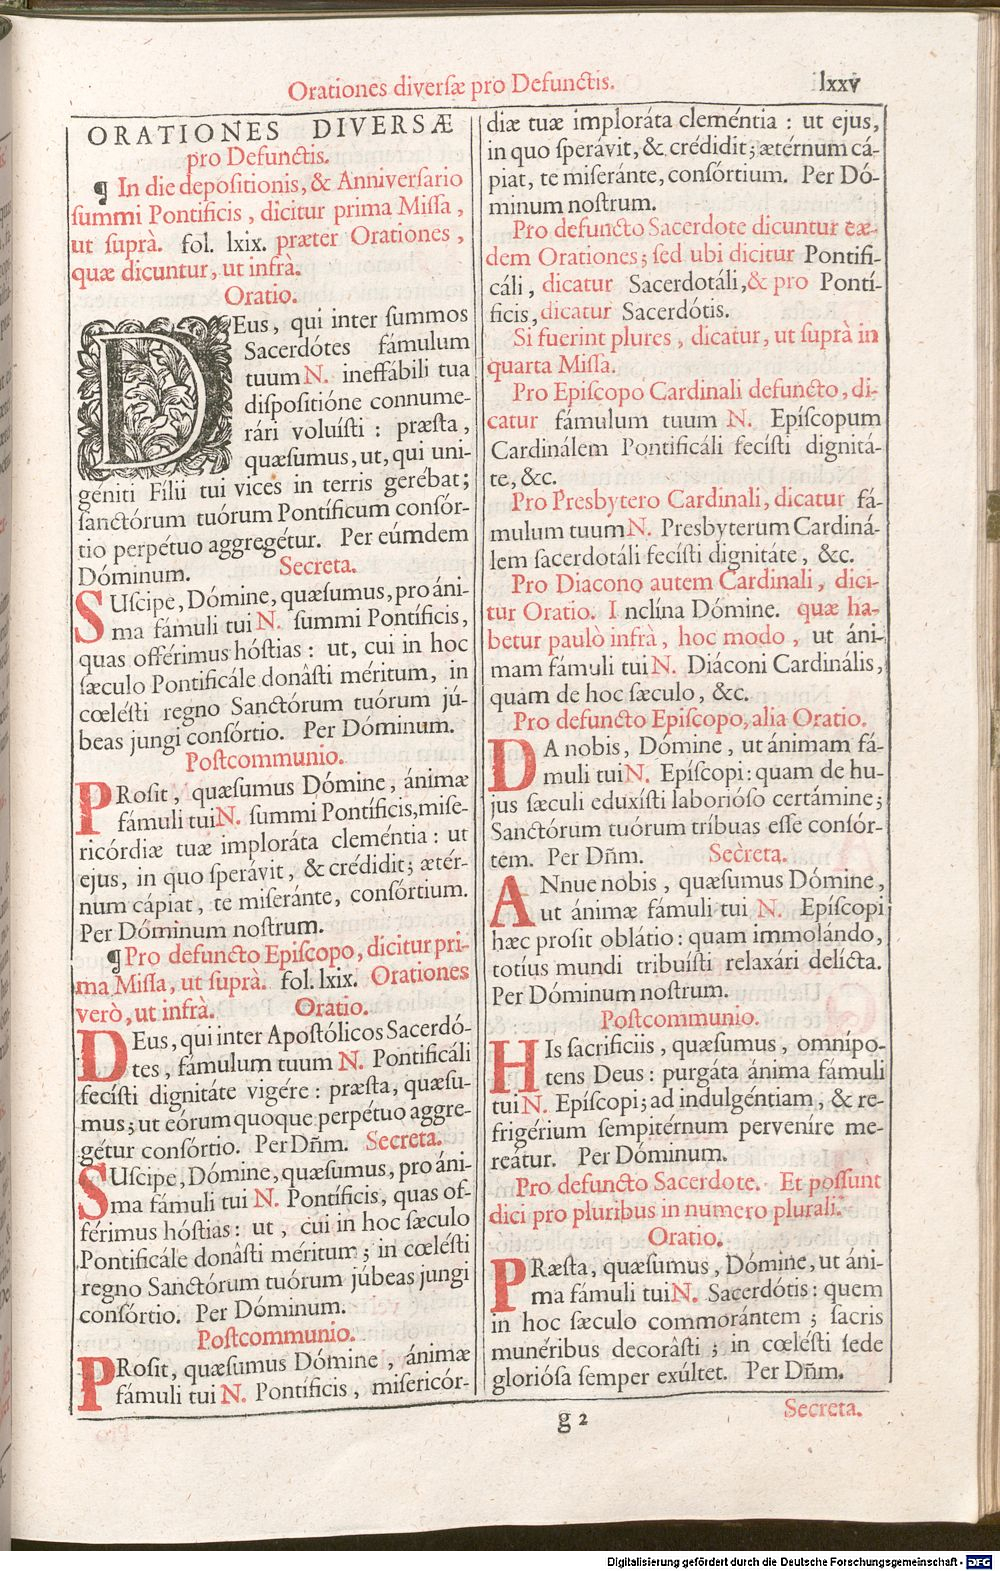 Orationes diversæ pro Defunctis.
lxxv
ORATIONES DIVERSÆ
pro Defunctis.
¶ In die depositionis, & Anniversario
summi Pontificis, dicitur prima Missa,
ut suprà. fol. lxix. præter Orationes,
quæ dicuntur, ut infrà.
Oratio.
DEus, qui inter summos
Sacerdótes fámulum
tuum N. ineffábili tua
dispositióne connume-
rári voluísti : præsta,
quæsumus, ut, qui uni-
géniti Fílii tui vices in terris gerébat;
sanctórum tuórum Pontíficum consór-
tio perpétuo aggregétur. Per eúmdem
Dóminum. Secreta.
SUscipe, Dómine, quæsumus, pro áni-
ma fámuli tui N. summi Pontíficis,
quas offérimus hóstias : ut, cui in hoc
sæculo Pontificále donâsti méritum, in
cœlésti regno Sanctórum tuórum jú-
beas jungi consórtio. Per Dóminum.
Postcommunio.
PRosit, quæsumus Dómine, ánimæ
fámuli tui N. summi Pontíficis, mise-
ricórdiæ tuæ imploráta cleméntia : ut
ejus, in quo sperávit, & crédidit; ætér-
num cápiat, te miseránte, consórtium.
Per Dóminum nostrum.
¶ Pro defuncto Episcopo, dicitur pri-
ma Missa, ut suprà. fol. lxix. Orationes
verò, ut infrà. Oratio.
DEus, qui inter Apostólicos Sacerdó-
tes, fámulum tuum N. Pontificáli
fecísti dignitáte vigére : præsta, quæsu-
mus; ut eórum quoque perpétuo aggre-
gétur consórtio. Per Dñm. Secreta.
SUscipe, Dómine, quæsumus, pro áni-
ma fámuli tui N. Pontíficis, quas of-
férimus hóstias : ut, cui in hoc sæculo
Pontificále donâsti méritum; in cœlésti
regno Sanctórum tuórum júbeas jungi
consórtio. Per Dóminum.
Postcommunio.
PRosit, quæsumus Dómine, ánimæ
fámuli tui N. Pontíficis, misericór-
diæ tuæ imploráta cleméntia : ut ejus,
in quo sperávit, & crédidit; ætérnum cá-
piat, te miseránte, consórtium. Per Dó-
minum nostrum.
Pro defuncto Sacerdote dicuntur eæ-
dem Orationes; sed ubi dicitur Pontifi-
cáli, dicatur Sacerdotáli, & pro Pontí-
ficis, dicatur Sacerdótis.
Si fuerint plures, dicatur, ut suprà in
quarta Missa.
Pro Episcopo Cardinali defuncto, di-
catur fámulum tuum N. Epíscopum
Cardinálem Pontificáli fecísti dignitá-
te, &c.
Pro Presbytero Cardinali, dicatur fá-
mulum tuum N. Presbyterum Cardiná-
lem sacerdotáli fecísti dignitáte, &c.
Pro Diacono autem Cardinali, dici-
tur Oratio. I nclína Dómine. quæ ha-
betur paulò infrà, hoc modo, ut áni-
mam fámuli tui N. Diáconi Cardinális,
quam de hoc sæculo, &c.
Pro defuncto Episcopo, alia Oratio.
DA nobis, Dómine, ut ánimam fá-
muli tui N. Epíscopi : quam de hu-
jus sæculi eduxísti laborióso certámine;
Sanctórum tuórum tríbuas esse consór-
tem. Per Dñm. Secreta.
ANnue nobis, quæsumus Dómine,
ut ánimæ fámuli tui N. Epíscopi
hæc prosit oblátio : quam immolándo,
totíus mundi tribuísti relaxári delícta.
Per Dóminum nostrum.
Postcommunio.
HIs sacrificiis, quæsumus, omnípo-
tens Deus : purgáta ánima fámuli
tui N. Epíscopi; ad indulgéntiam, & re-
frigérium sempitérnum perveníre me-
reátur. Per Dóminum.
Pro defuncto Sacerdote. Et possunt
dici pro pluribus in numero plurali.
Oratio.
PRæsta, quæsumus, Dómine, ut áni-
ma fámuli tui N. Sacerdótis : quem
in hoc sæculo commorántem; sacris
munéribus decorâsti; in cœlésti sede
gloriósa semper exúltet. Per Dñm.
g 2
Secreta.
Digitalisierung gefördert durch die Deutsche Forschungsgemeinschaft - DFG